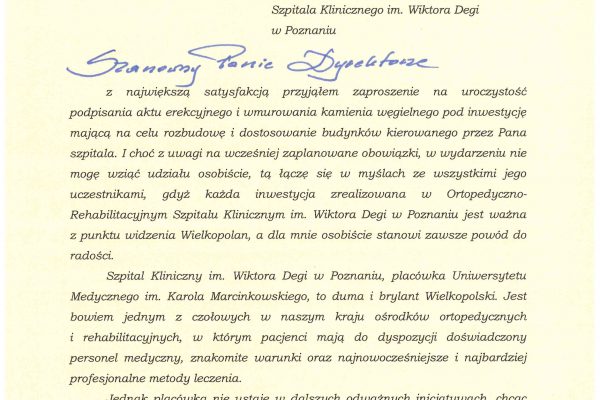 Szpitala Klinicznego im. Wiktora Degi
w Poznaniu
Szanowny Panie Dyrektorze
z największą satysfakcją przyjąłem zaproszenie na uroczystość
podpisania aktu erekcyjnego i wmurowania kamienia węgielnego pod inwestycję
mającą na celu rozbudowę i dostosowanie budynków kierowanego przez Pana
szpitala. I choć z uwagi na wcześniej zaplanowane obowiązki, w wydarzeniu nie
mogę wziąć udziału osobiście, tą łączę się w myślach ze wszystkimi jego
uczestnikami, gdyż każda inwestycja zrealizowana w Ortopedyczno-
Rehabilitacyjnym Szpitalu Klinicznym im. Wiktora Degi w Poznaniu jest ważna
z punktu widzenia Wielkopolan, a dla mnie osobiście stanowi zawsze powód do
radości.
Szpital Kliniczny im. Wiktora Degi w Poznaniu, placówka Uniwersytetu
Medycznego im. Karola Marcinkowskiego, to duma i brylant Wielkopolski. Jest
bowiem jednym z czołowych w naszym kraju ośrodków ortopedycznych
i rehabilitacyjnych, w którym pacjenci mają do dyspozycji doświadczony
personel medyczny, znakomite warunki oraz najnowocześniejsze i najbardziej
profesjonalne metody leczenia.
Jednak placówka nie ustaje w dalszych odważnych inicjatywach, chcąc